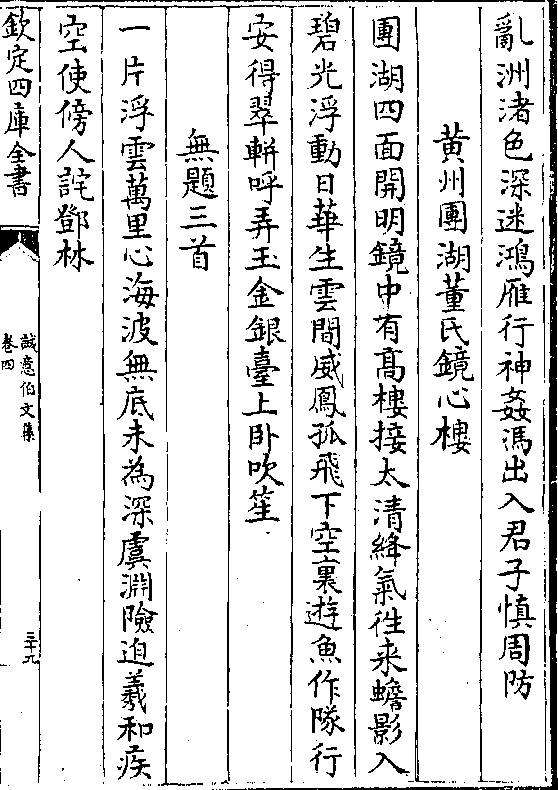 亂洲渚色深迷鴻雁行神姦馮出入君子慎周防
黄州團湖董氏鏡心樓
團湖四面開明鏡中有髙樓接太清絳氣徃来蟾影入
碧光浮動日華生雲間威鳳孤飛下空裏遊魚作隊行
安得翠軿呼弄玉金銀臺上卧吹笙
無題三首
一片浮雲萬里心海波無底未為深虞淵險迫羲和疾
空使傍人詫鄧林
欽定四庫全書
誠意伯文集
卷四
三十九